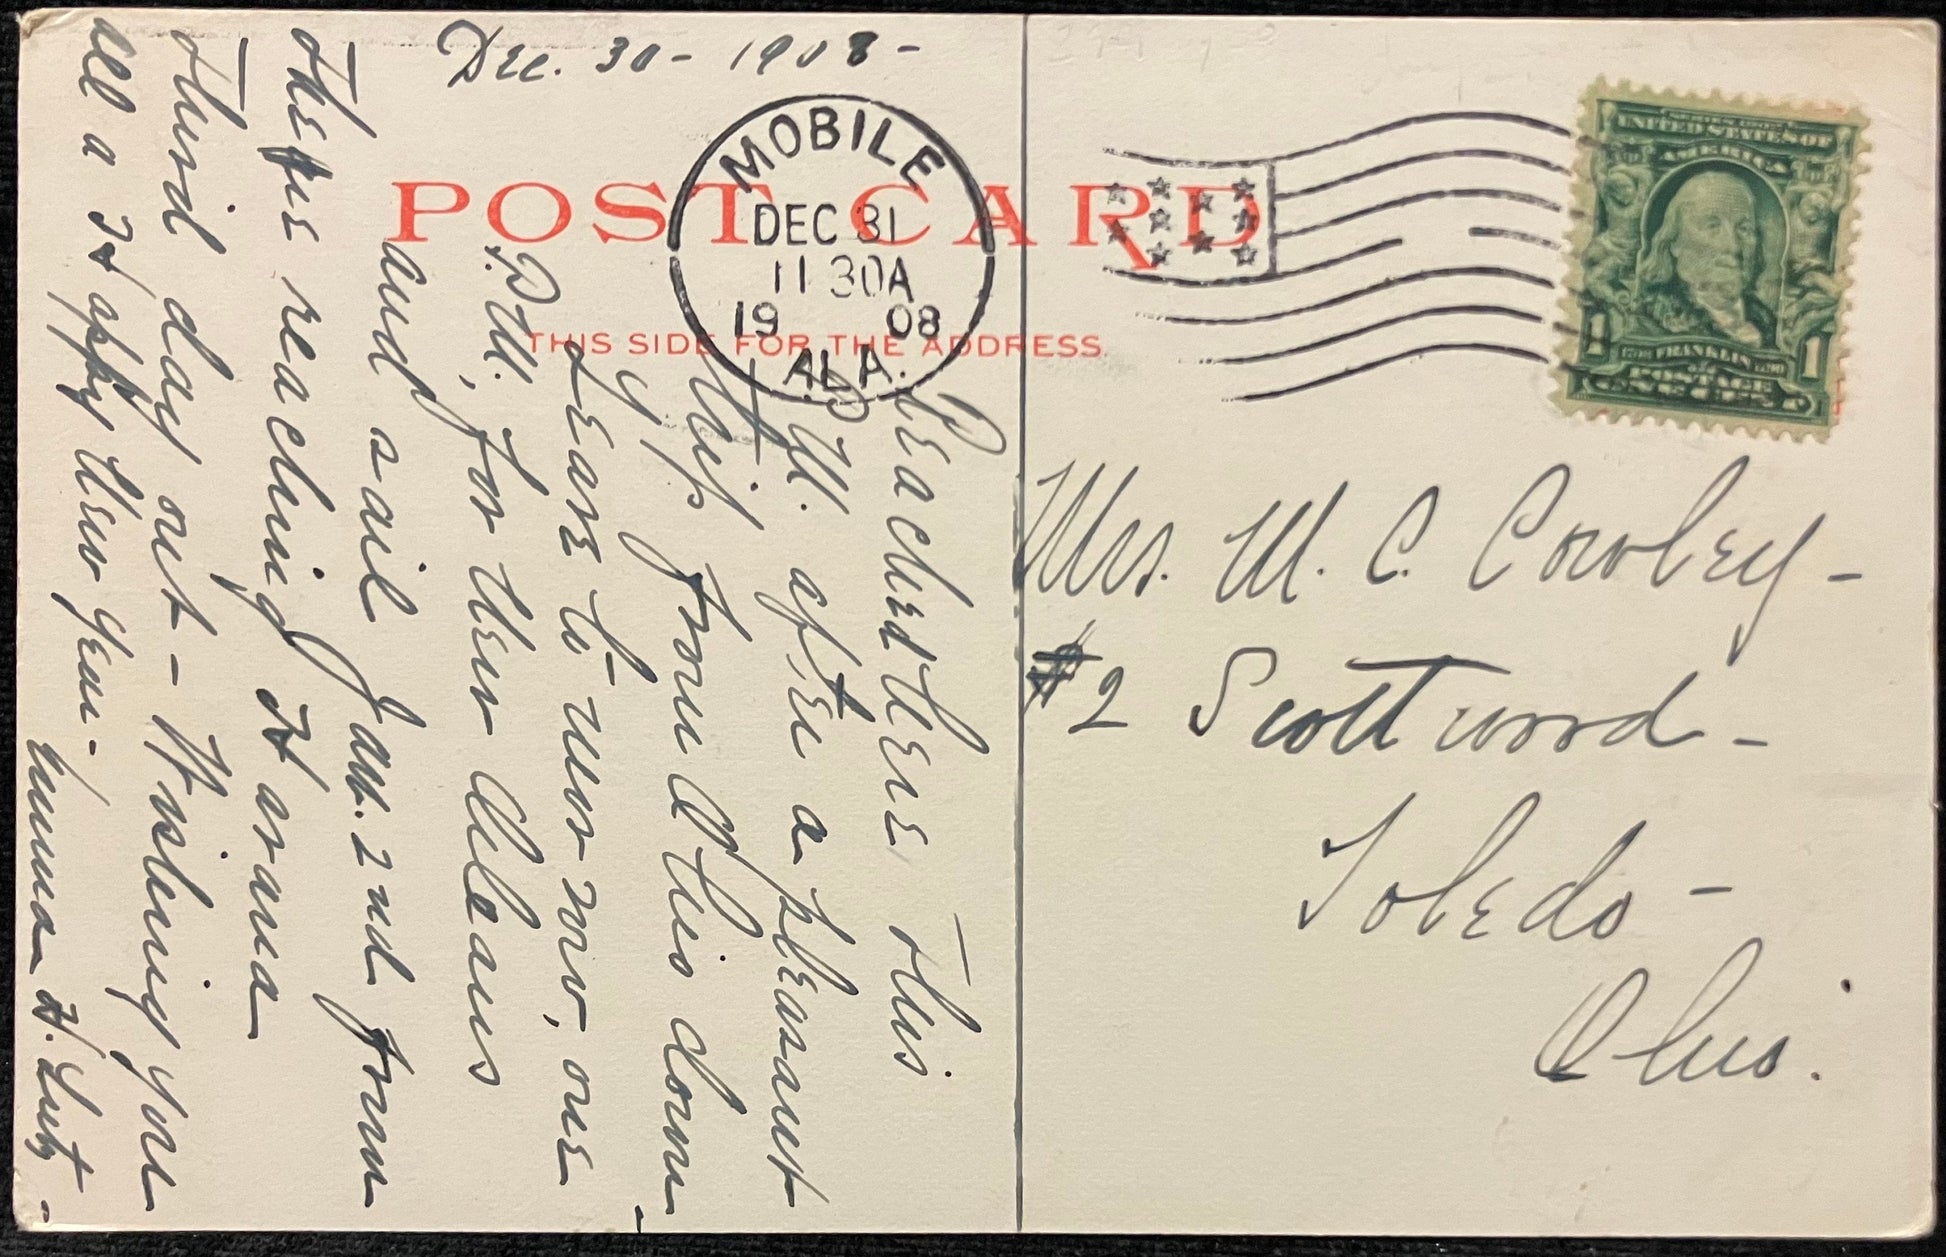 Dec. 30 - 1908 -
POST CARD
THIS SIDE FOR THE ADDRESS.
MOBILE
DEC 31
11 30A
19 08
ALA.
SERIES 1902
UNITED STATES OF
AMERICA
1 FRANKLIN 1
POSTAGE
Reached here this
P.M. after a pleasant
trip from down -
I leave to-morrow, one
P.M., for New Orleans
and sail Jan. 2nd from
there reaching Havana
third day out - Wishing you
all a Happy New Year -
Emma H. Lutz -
Mrs. M. C. Cowley -
#2 Scottwood -
Toledo -
Ohio.